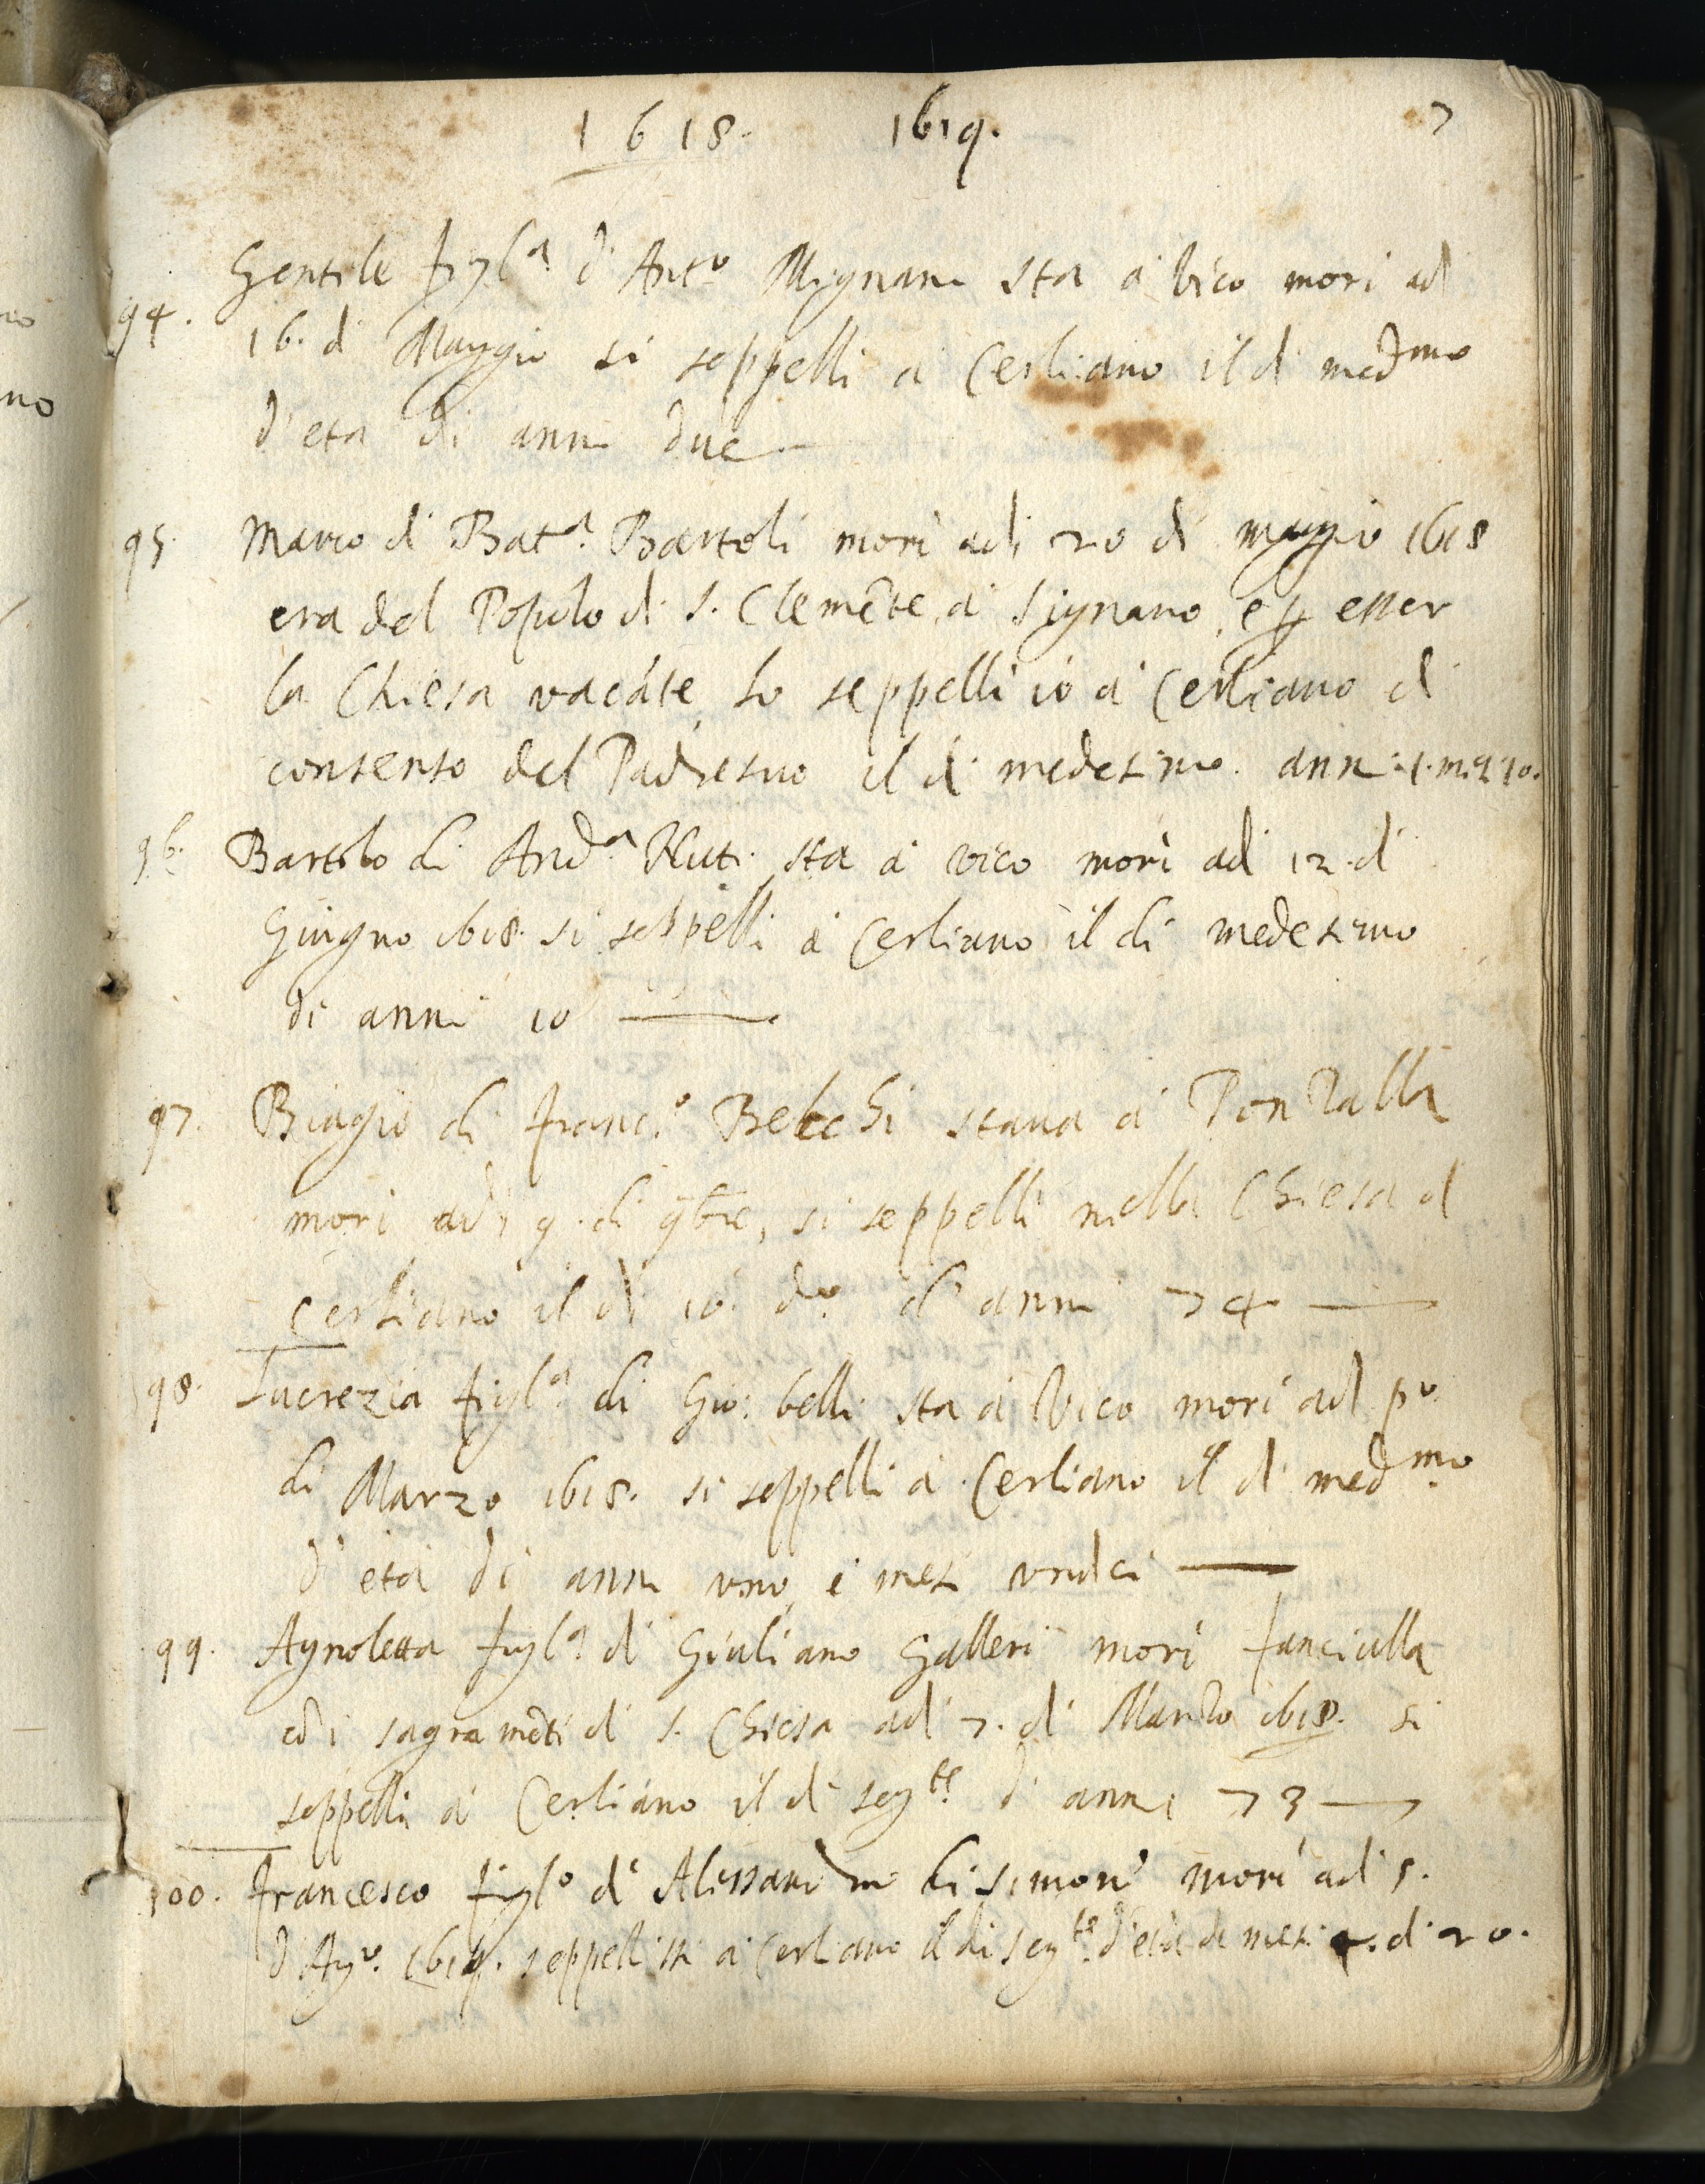 1618. 1619. 7
94. Gentile figl.a d' Ant.o Mignani sta à Vico morì ad
16. di Maggio si seppellì à Cerliano il dì med.mo
d'età di anni due
95. Marco di Bat.a Bartoli morì adi 20 di maggio 1618
era del Popolo di S. Clemẽte à Signano, e ꝑ esser
la Chiesa vacãte lo seppellì io à Cerliano di
consenso del Padre suo il dì medesimo. anni
96. Bartolo di And.a Nuti sta à vico morì adi 12 di
Giugno 1618. si seppellì à Cerliano il di medesimo
di anni 10
97. Biagio di Franc.o Belcchi staua à Pontalla
morì adi 9. di 9bre, si seppellì nella Chiesa di
Cerliano il dì 10. d.o di anni 74
98. Lucrezia figl.a di Gio: belli sta à Vico morì adi p.o
di Marzo 1618. si seppellì à Cerliano il dì med.mo
d'età di anni uno, e mesi undici
99. Agnoletta figl.a di Giuliano Galleri morì fanciulla
cõ i sagramẽti di S. Chiesa adi 7. di Marzo 1618. si
seppellì à Cerliano il dì seg.te di anni 73
100. Francesco figl.o di Alessandro di Simone morì adi 5.
d'Ag.o 1619. seppellissi à Cerliano il di seg.te d'età di mesi di 20.